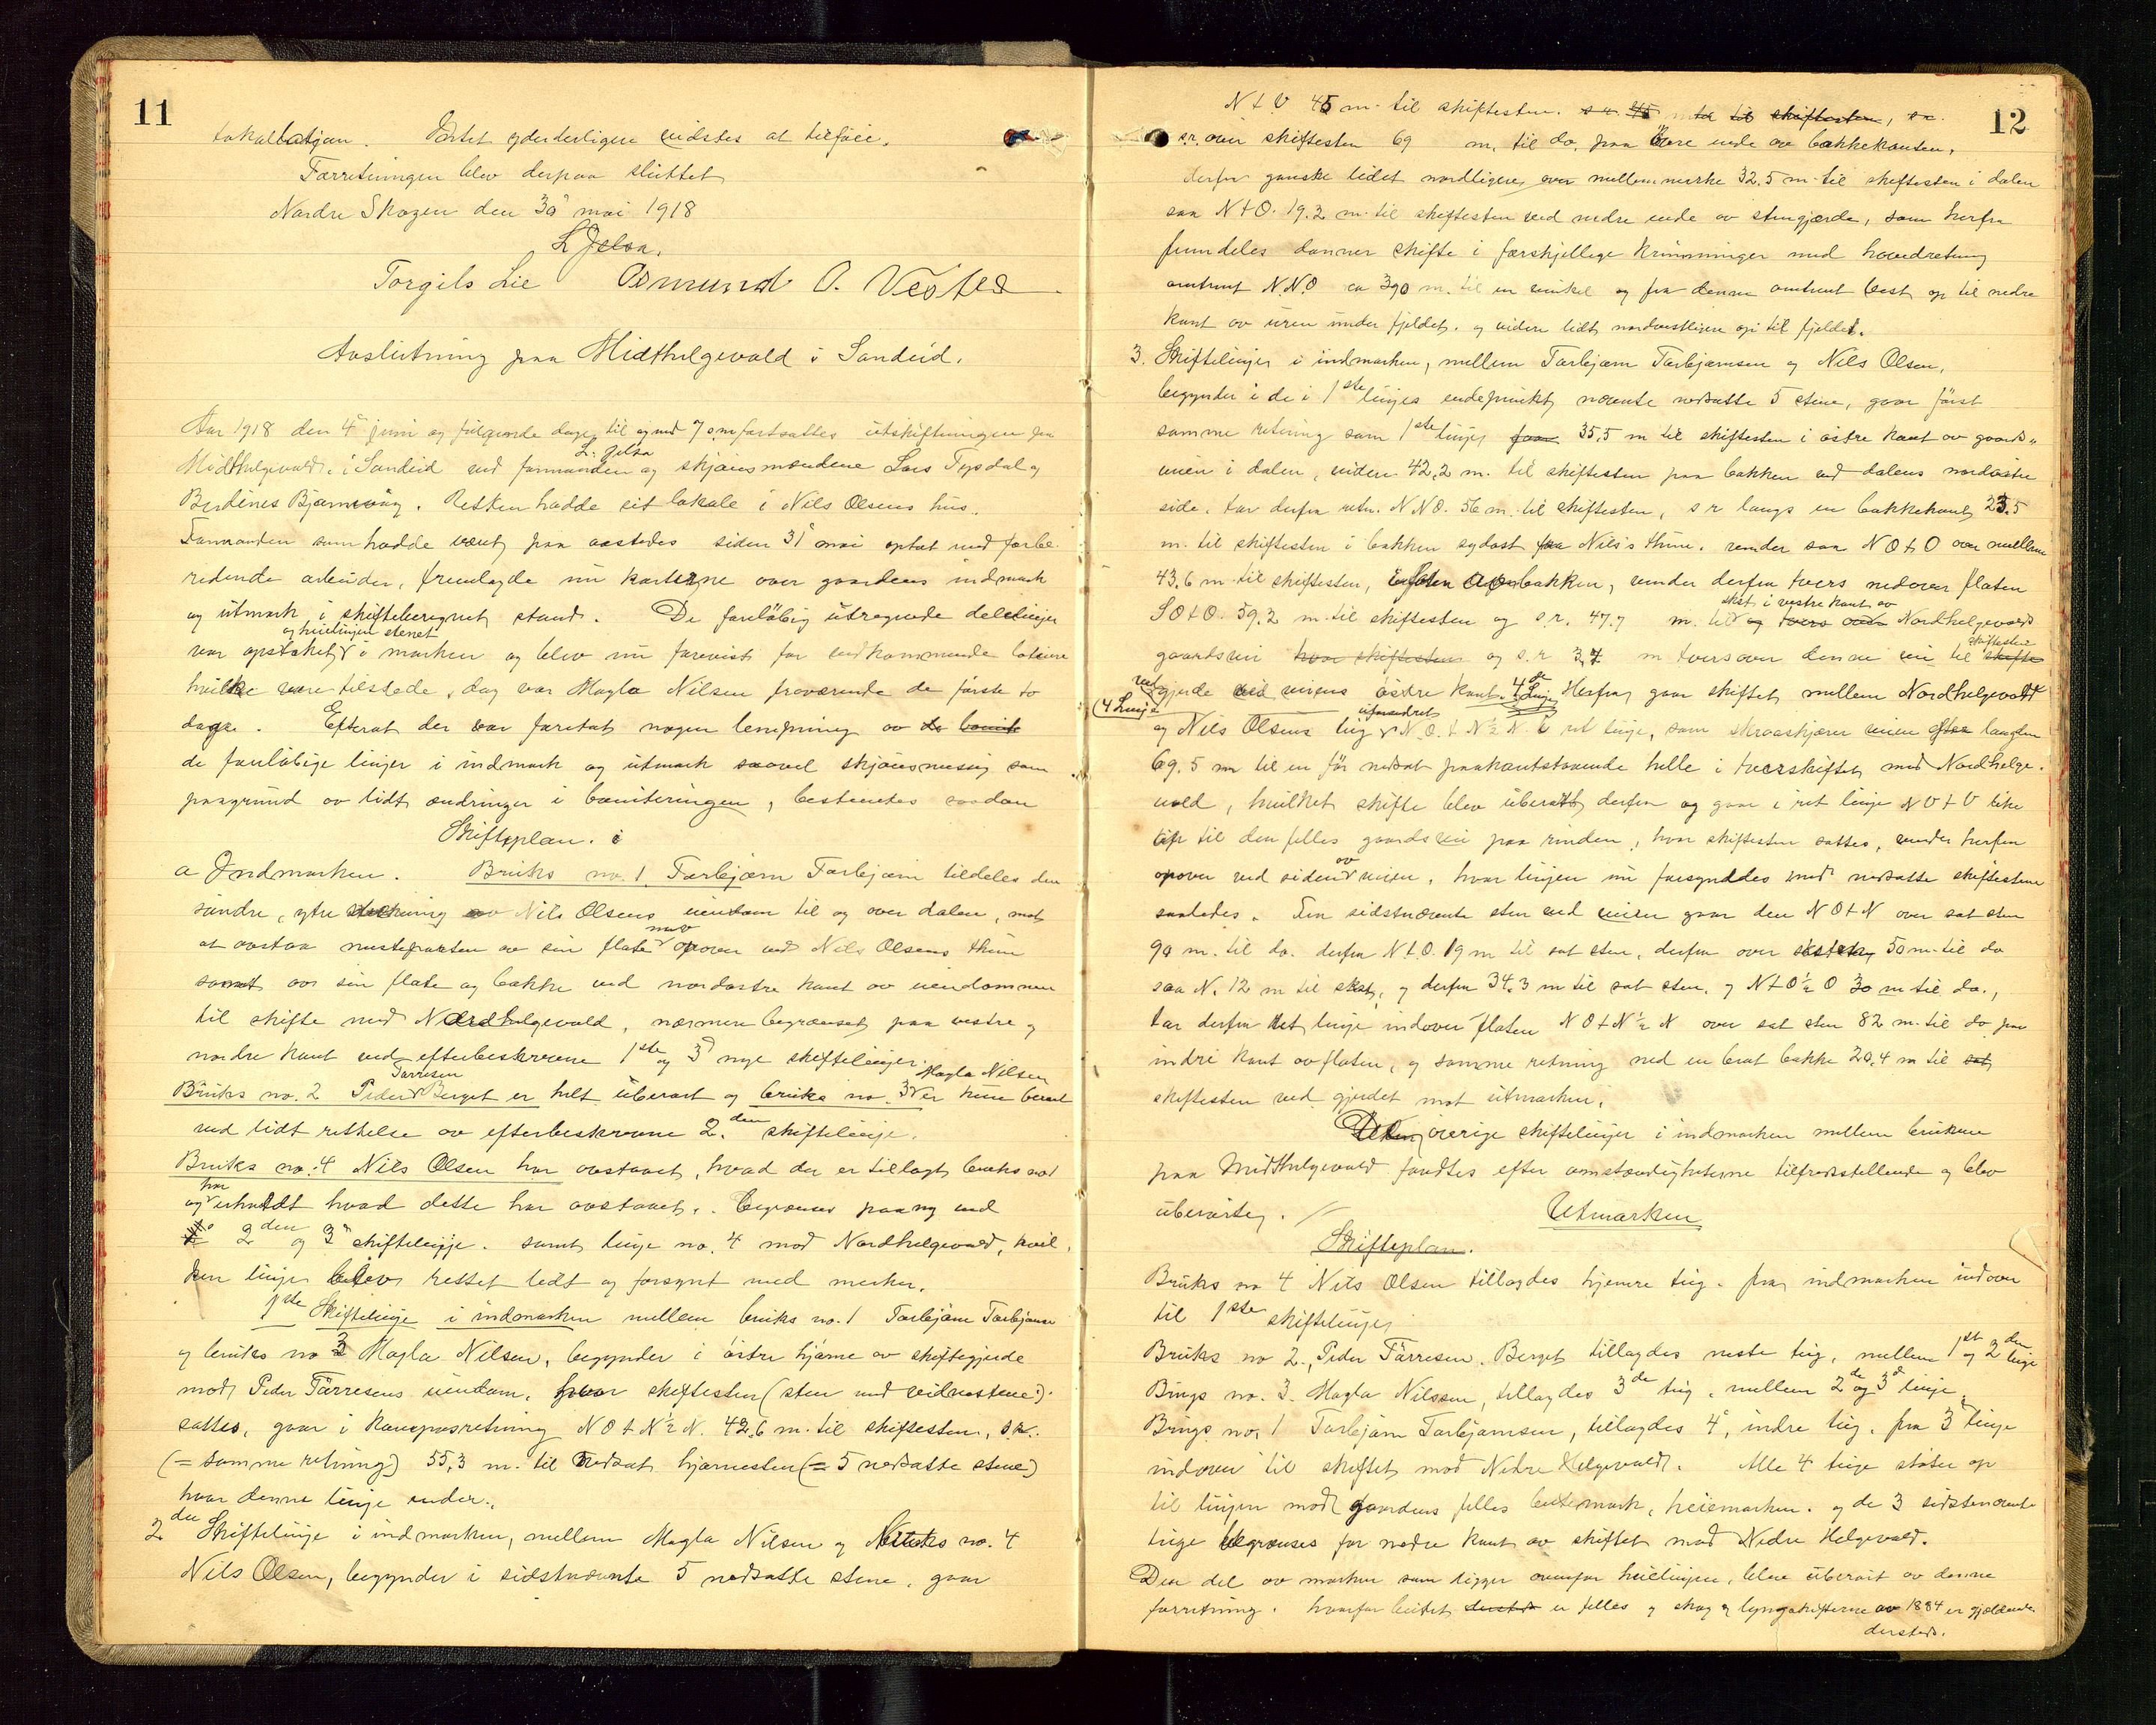 11
lokalbetjen. Intet yderderligere vidstes at tilføie.
Forretningen blev derpaa sluttet
Nordre Skogen den 30' mai 1918
L Jelsa.
Torgils Lie Asmund O. Vestbø
Avslutning paa Midthelgevold i Sandeid.
Aar 1918 den 4de juni og følgende dage, til og med 7 s.m. fortsattes utskiftningen paa
Midthelgevold i Sandeid ved formanden L. Jelsa og skjønsmændene Lars Tysdal og
Berdines Bjørnevåg. Retten hadde sit lokale i Nils Olsens hus.
Formanden som hadde været paa aastedet siden 31 mai optat med forbe-
redende arbeider, fremlagde nu karterne over gaardens indmark
og utmark i skifteberegnet stand. De foreløbig utregnede delelinjer
var opstaket og heielinjen stenet i marken og blev nu forevist for vedkommende lotseiere
hvilke var tilstede, dog var Magla Nilsen fraværende de første to
dage. Efterat der var foretat nogen lempning av de bonit
de foreløbige linjer i indmark og utmark saavel skjønsmæssig som
paagrund av lidt ændringer i boniteringen, bestemtes saadan
Skifteplan. i
a Indmarken. Bruks no. 1. Torbjørn Torbjørn tildeles den
søndre, ytre strækning av Nils Olsens eiendom til og over dalen, mot
at avstaa nusteparten av sin flate nord opover ved Nils Olsens thun
samt av sin flate og bakke ved nordøstre kant av eiendommen
til skifte med Nordhelgevold, nærmere begrænset paa vestre og
nordre kant ved efterbeskrevne 1ste og 3d nye skiftelinjer.
Bruks no. 2 Peder Tørresen Berget er helt uberørt og bruks no. 3 Magla Nilsen er kun berørt
ved lidt rettelse av efterbeskrevne 2.den skiftelinje.
Bruks no. 4 Nils Olsen har avstaaet, hvad der er tillagt bruks no 1
og har erholdt hvad dette har avstaaet. Begrænses paany ved
2den og 3' skiftelinje. samt linje no. 4 mod Nordhelgevold, hvil-
ken linje blev rettet lidt og forsynt med merker.
1ste Skiftelinje i indmarken mellem bruks no. 1 Torbjørn Torbjørnsen
og bruks no 3 Magla Nilsen, begynder i østre hjørne av skiftegjerde
mod Peder Tørresens eiendom, hvor skiftesten (sten med vidnestene)
sattes, gaar i kompasretning N O t N ½ N. 42,6 m. til skiftesten, s.r.
(= samme retning) 55,3 m. til nedsat hjørnesten (= 5 nedsatte stene)
hvor denne linje ender.
2den Skiftelinje i indmarken, mellem Magla Nilsen og bruks no. 4
Nils Olsen, begynder i sidstnævnte 5 nedsatte stene, gaar
12
N t V 45 m. til skiftesten. s r. 45 m til skiftesten, s r.
s.r. over skiftesten 69 m. til do. paa øvre ende av bakkekanten,
derfra ganske lidet nordligere, over mellemmerke 32,5 m. til skiftesten i dalen
saa N t O. 19.2 m. til skiftesten ved nedre ende av stengjerde, som herfra
fremdeles danner skifte i forskjellige krumninger med hovedretning
omtrent N.N.O ca 390 m. til en vinkel og fra denne omtrent vest op til nedre
kant av uren under fjeldet. og videre lidt nordvestligere op til fjeldet.
3. Skiftelinjer i indmarken, mellem Torbjørn Torbjørnsen og Nils Olsen,
begynder i de i 1ste linjes endepunkt nævnte nedsatte 5 stene, gaar først
samme retning som 1ste linje 35,5 m til skiftesten i østre kant av gaards-
veien i dalen, videre 42,2 m. til skiftesten paa bakken ved dalens nordøstre
side, tar derfra retn. N N O. 56 m. til skiftesten, s r langs en bakkekant 23.5
m. til skiftesten i bakken sydøst fra Nils's thun. vender saa N O t O over mellem
43,6 m til skiftesten, bakken, vender derfra tvers nedover flaten
S O t O. 59,2 m. til skiftesten og s.r. 47.7 m. til skst i vestre kant av og tvers over Nordhelgevold
gaardsvei hvor skiftesten og s.r 3,7 m tversover denne vei til skiftesten
(4 Linje ved gjerde ved veiens østre kant. 4de Linje Herfra gaar skiftet mellem Nordhelgevold
og Nils Olsens teig uforandret N.O. t N ½ N. i ret linje, som skraaskjærer veien efter længden
69.5 m til en før nedsat paakantstaaende helle i tverskiftet med Nordhelge-
vold, hvilket skifte blev uberørt derfra og gaar i ret linje N V t V like
op til den felles gaardsvei paa rinden, hvor skiftesten sattes, vender herfra
opover ved siden av veien, hvor linjen nu forsynedes med nedsatte skiftestene
saaledes. Fra sidstnævnte sten ved veien gaar den N O t N over sat sten
90 m. til do. derfra N t O. 19 m til sat sten, derfra over 50 m til do
saa N. 12 m til skst, og derfra 34.3 m til sat sten, og N t O ½ O 30 m til do.,
tar derfra ret linje indover flaten N O t N ½ N over sat sten 82 m. til do paa
indre kant av flaten, og samme retning ned en brat bakke 20,4 m til sat
skiftesten ved gjerdet mot utmarken.
De øvrige skiftelinjer i indmarken mellem brukene
paa Midthelgevold fandtes efter omstændighederne tilfredsstillende og blev
uberørte.
Utmarken
Skifteplan.
Bruks no 4 Nils Olsen tillagdes hjemre teig. fra indmarken indover
til 1ste skiftelinje,
Bruks no 2., Peder Tørresen. Berget tillagdes neste teig, mellem 1st og 2den linje
Brugs no. 3. Magla Nilssen, tillagdes 3de teig, mellem 2de og 3d linje,
Brugs no, 1 Torbjørn Torbjørnsen, tillagdes 4', indre teig. fra 3' linje
indover til skiftet mod Nedre Helgevold. Alle 4 teige støter op
til linjen mod gaardens felles beitemark, heiemarken. og de 3 sidstnævnte
teige begrænses for nedre kant av skiftet mod Nedre Helgevold.
Den del av marken som ligger ovenfor heielinjen, blev uberørt av denne
forretning. hvorfor beitet derstede er felles og skog og lyngskifterne av 1884 er gjældende
dersteds.